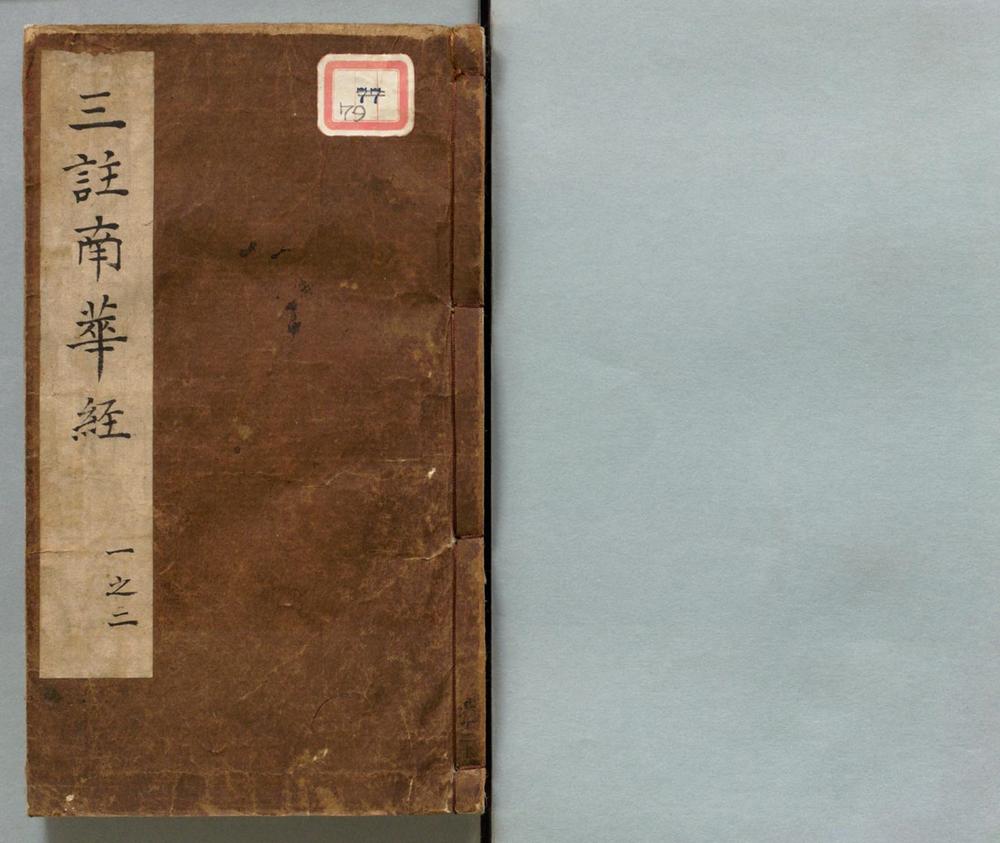 三註南華經
一之二
77
79